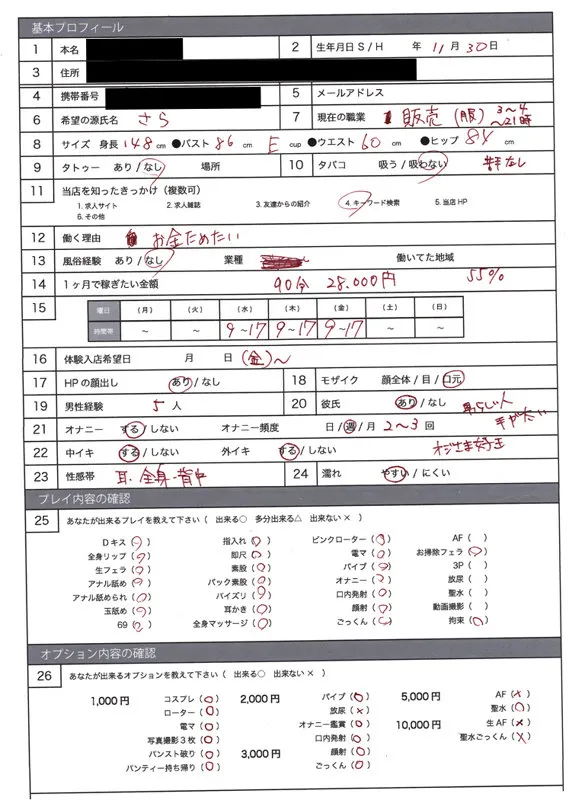 基本プロフィール
1 本名 2 生年月日 S / H 年 11月 30日
3 住所
4 携帯番号 5 メールアドレス
6 希望の源氏名 さら 7 現在の職業 販売(服) 3〜4 〜21時
8 サイズ 身長 148cm ●バスト 86cm E cup ●ウエスト 60cm ●ヒップ 84cm
9 タトゥー あり / なし 場所 10 タバコ 吸う / 吸わない なし
11 当店を知ったきっかけ(複数可)
1. 求人サイト 2. 求人雑誌 3. 友達からの紹介 4. キーワード検索 5. 当店HP
6. その他
12 働く理由 お金ためたい
13 風俗経験 あり / なし 業種 働いてた地域
14 1ヶ月で稼ぎたい金額 90分 28.000円 55%
15 曜日 (月) (火) (水) (木) (金) (土) (日)
時間帯 〜 〜 9〜17 9〜17 9〜17 〜 〜
16 体験入店希望日 月 日 (金)〜
17 HPの顔出し あり / なし 18 モザイク 顔全体 / 目 / 口元
19 男性経験 5人 20 彼氏 あり / なし
21 オナニー する / しない オナニー頻度 日 / 週 / 月 2〜3回
22 中イキ する / しない 外イキ する / しない
23 性感帯 耳・全身・背中 24 濡れ やすい / にくい
プレイ内容の確認
25 あなたが出来るプレイを教えて下さい( 出来る○ 多分出来る△ 出来ない× )
Dキス(○) 指入れ(○) ピンクローター(○) AF( )
全身リップ(○) 即尺(○) 電マ(○) お掃除フェラ(○)
生フェラ(○) 素股(○) バイブ(○) 3P( )
アナル舐め(○) バック素股(○) オナニー(○) 放尿( )
アナル舐められ(○) パイズリ(○) 口内発射(○) 聖水( )
玉舐め(○) 耳かき(○) 顔射(○) 動画撮影( )
69(○) 全身マッサージ(○) ごっくん(○) 拘束(○)
オプション内容の確認
26 あなたが出来るオプションを教えて下さい( 出来る○ 出来ない× )
1,000円 コスプレ(○) 2,000円 バイブ(○) 5,000円 AF(×)
ローター(○) 放尿(×) 聖水(○)
電マ(○) オナニー鑑賞(○) 10,000円 生AF(×)
写真撮影3枚(○) 口内発射(○) 聖水ごっくん(×)
パンスト破り(○) 3,000円 顔射(○)
パンティー持ち帰り(○) ごっくん(○)